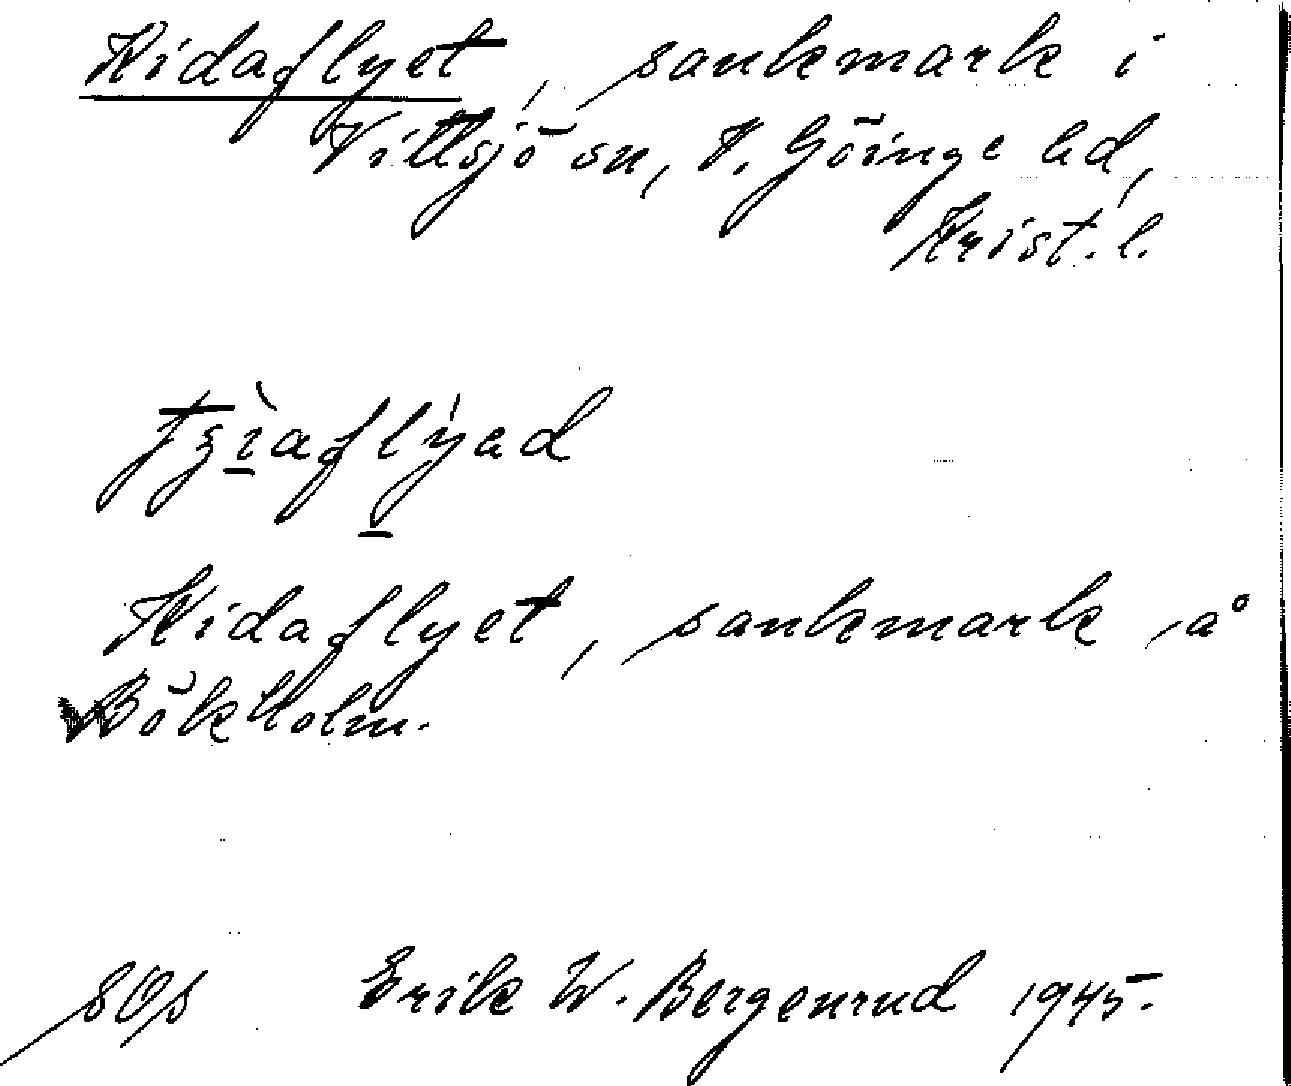 Kidaflyet, sankmark i
Vittsjö sn, V. Göinge hd,
Krist. l.
Kidaflyet, sankmark å
Bökholm.
Erik W. Bergenrud 1945.